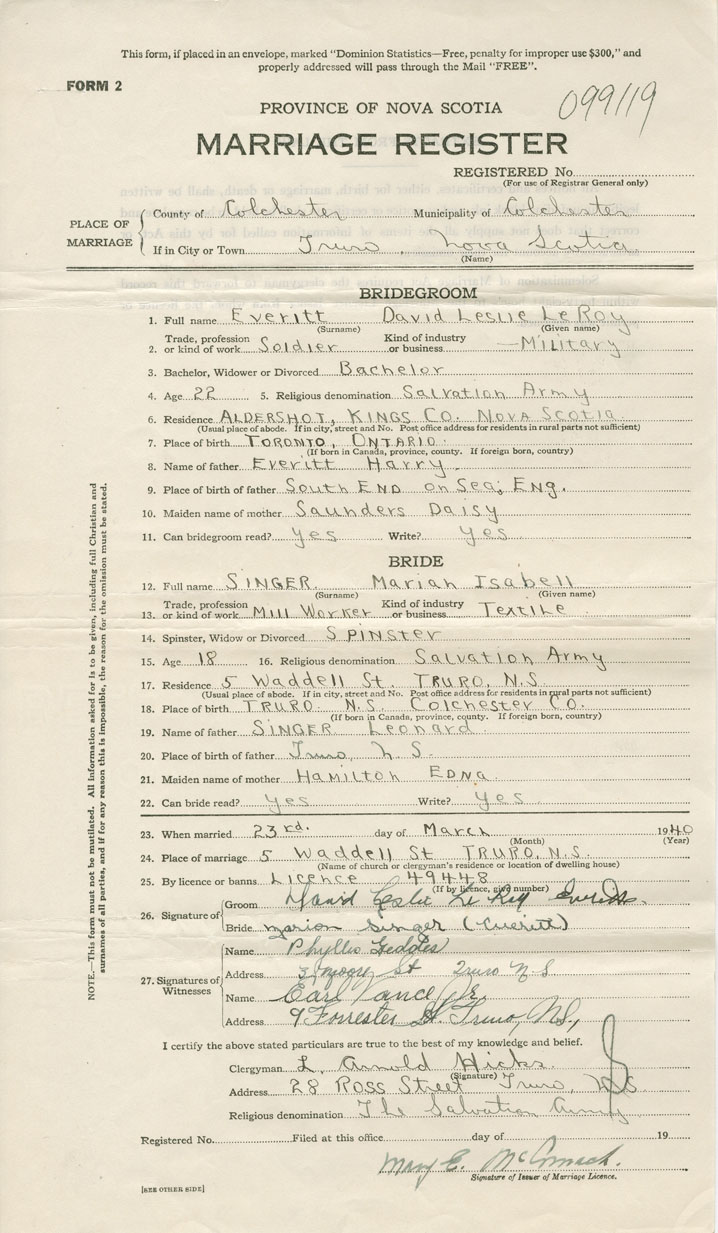 This form, if placed in an envelope, marked "Dominion Statistics—Free, penalty for improper use $300," and
properly addressed will pass through the Mail "FREE".
FORM 2
099119
PROVINCE OF NOVA SCOTIA
MARRIAGE REGISTER
REGISTERED No
(For use of Registrar General only)
PLACE OF MARRIAGE
County of Colchester Municipality of Colchester
If in City or Town Truro, Nova Scotia
(Name)
BRIDEGROOM
1. Full name Everitt David Leslie LeRoy
(Surname) (Given name)
2. Trade, profession or kind of work Soldier Kind of industry or business —Military
3. Bachelor, Widower or Divorced Bachelor
4. Age 22 5. Religious denomination Salvation Army
6. Residence ALDERSHOT, KINGS CO. NOVA SCOTIA
(Usual place of abode. If in city, street and No. Post office address for residents in rural parts not sufficient)
7. Place of birth TORONTO, ONTARIO.
(If born in Canada, province, county. If foreign born, country)
8. Name of father Everitt Harry
9. Place of birth of father South END on Sea, Eng.
10. Maiden name of mother Saunders Daisy
11. Can bridegroom read? Yes Write? Yes
BRIDE
12. Full name SINGER Marian Isabell
(Surname) (Given name)
13. Trade, profession or kind of work Mill Worker Kind of industry or business Textile
14. Spinster, Widow or Divorced SPINSTER
15. Age 18 16. Religious denomination Salvation Army
17. Residence 5 Waddell St. TRURO, N.S.
(Usual place of abode. If in city, street and No. Post office address for residents in rural parts not sufficient)
18. Place of birth TRURO N.S. Colchester Co.
(If born in Canada, province, county. If foreign born, country)
19. Name of father SINGER Leonard
20. Place of birth of father Truro, N.S.
21. Maiden name of mother HAMILTON EDNA
22. Can bride read? Yes Write? Yes
23. When married 23rd. day of March 1940
(Month) (Year)
24. Place of marriage 5 Waddell St TRURO, N.S.
(Name of church or clergyman's residence or location of dwelling house)
25. By licence or banns Licence 49448
(If by licence, give number)
26. Signature of Groom David Leslie Le Roy Everitt
Bride Marion Singer (Everitt)
27. Signatures of Witnesses
Name Phyllis Geddes
Address 3 St Truro N S
Name Earl Vance Jr
Address 9 Forrester St. Truro, N.S.,
I certify the above stated particulars are true to the best of my knowledge and belief.
Clergyman L. Arnold Hicks.
(Signature)
Address 28 Ross Street Truro, N S
Religious denomination The Salvation Army
Registered No. Filed at this office day of 19
Mary E. McCormack.
Signature of Issuer of Marriage Licence.
[SEE OTHER SIDE]
NOTE.—This form must not be mutilated. All information asked for is to be given, including full Christian and
surnames of all parties, and if for any reason this is impossible, the reason for the omission must be stated.